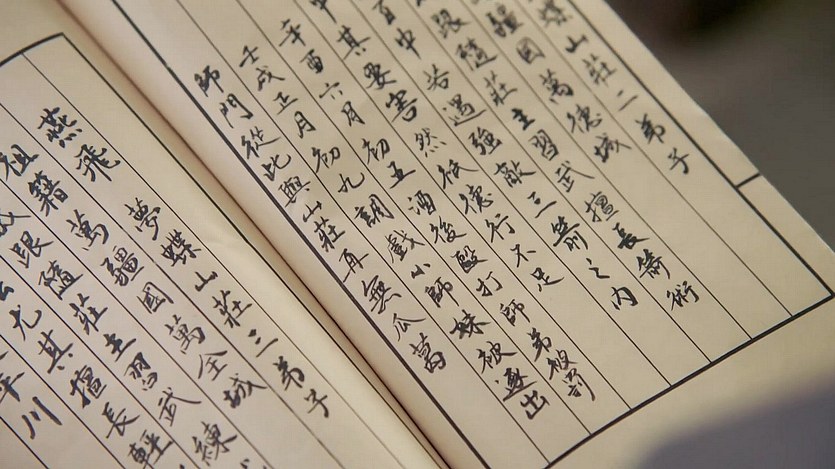 蝶山莊二弟子
疆國萬德城
跟隨莊主習武擅長箭術
百中若遇強敵三箭之內
中其要害然祇德行不足
辛酉六月初五酒後毆打師弟被罰
壬戌正月初九調戲小師妹被逐出
師門從此與山莊再無瓜葛
燕飛 夢蝶山莊三弟子
祖籍萬疆國萬全城
跟隨莊主習武練
尤其擅長輕
川